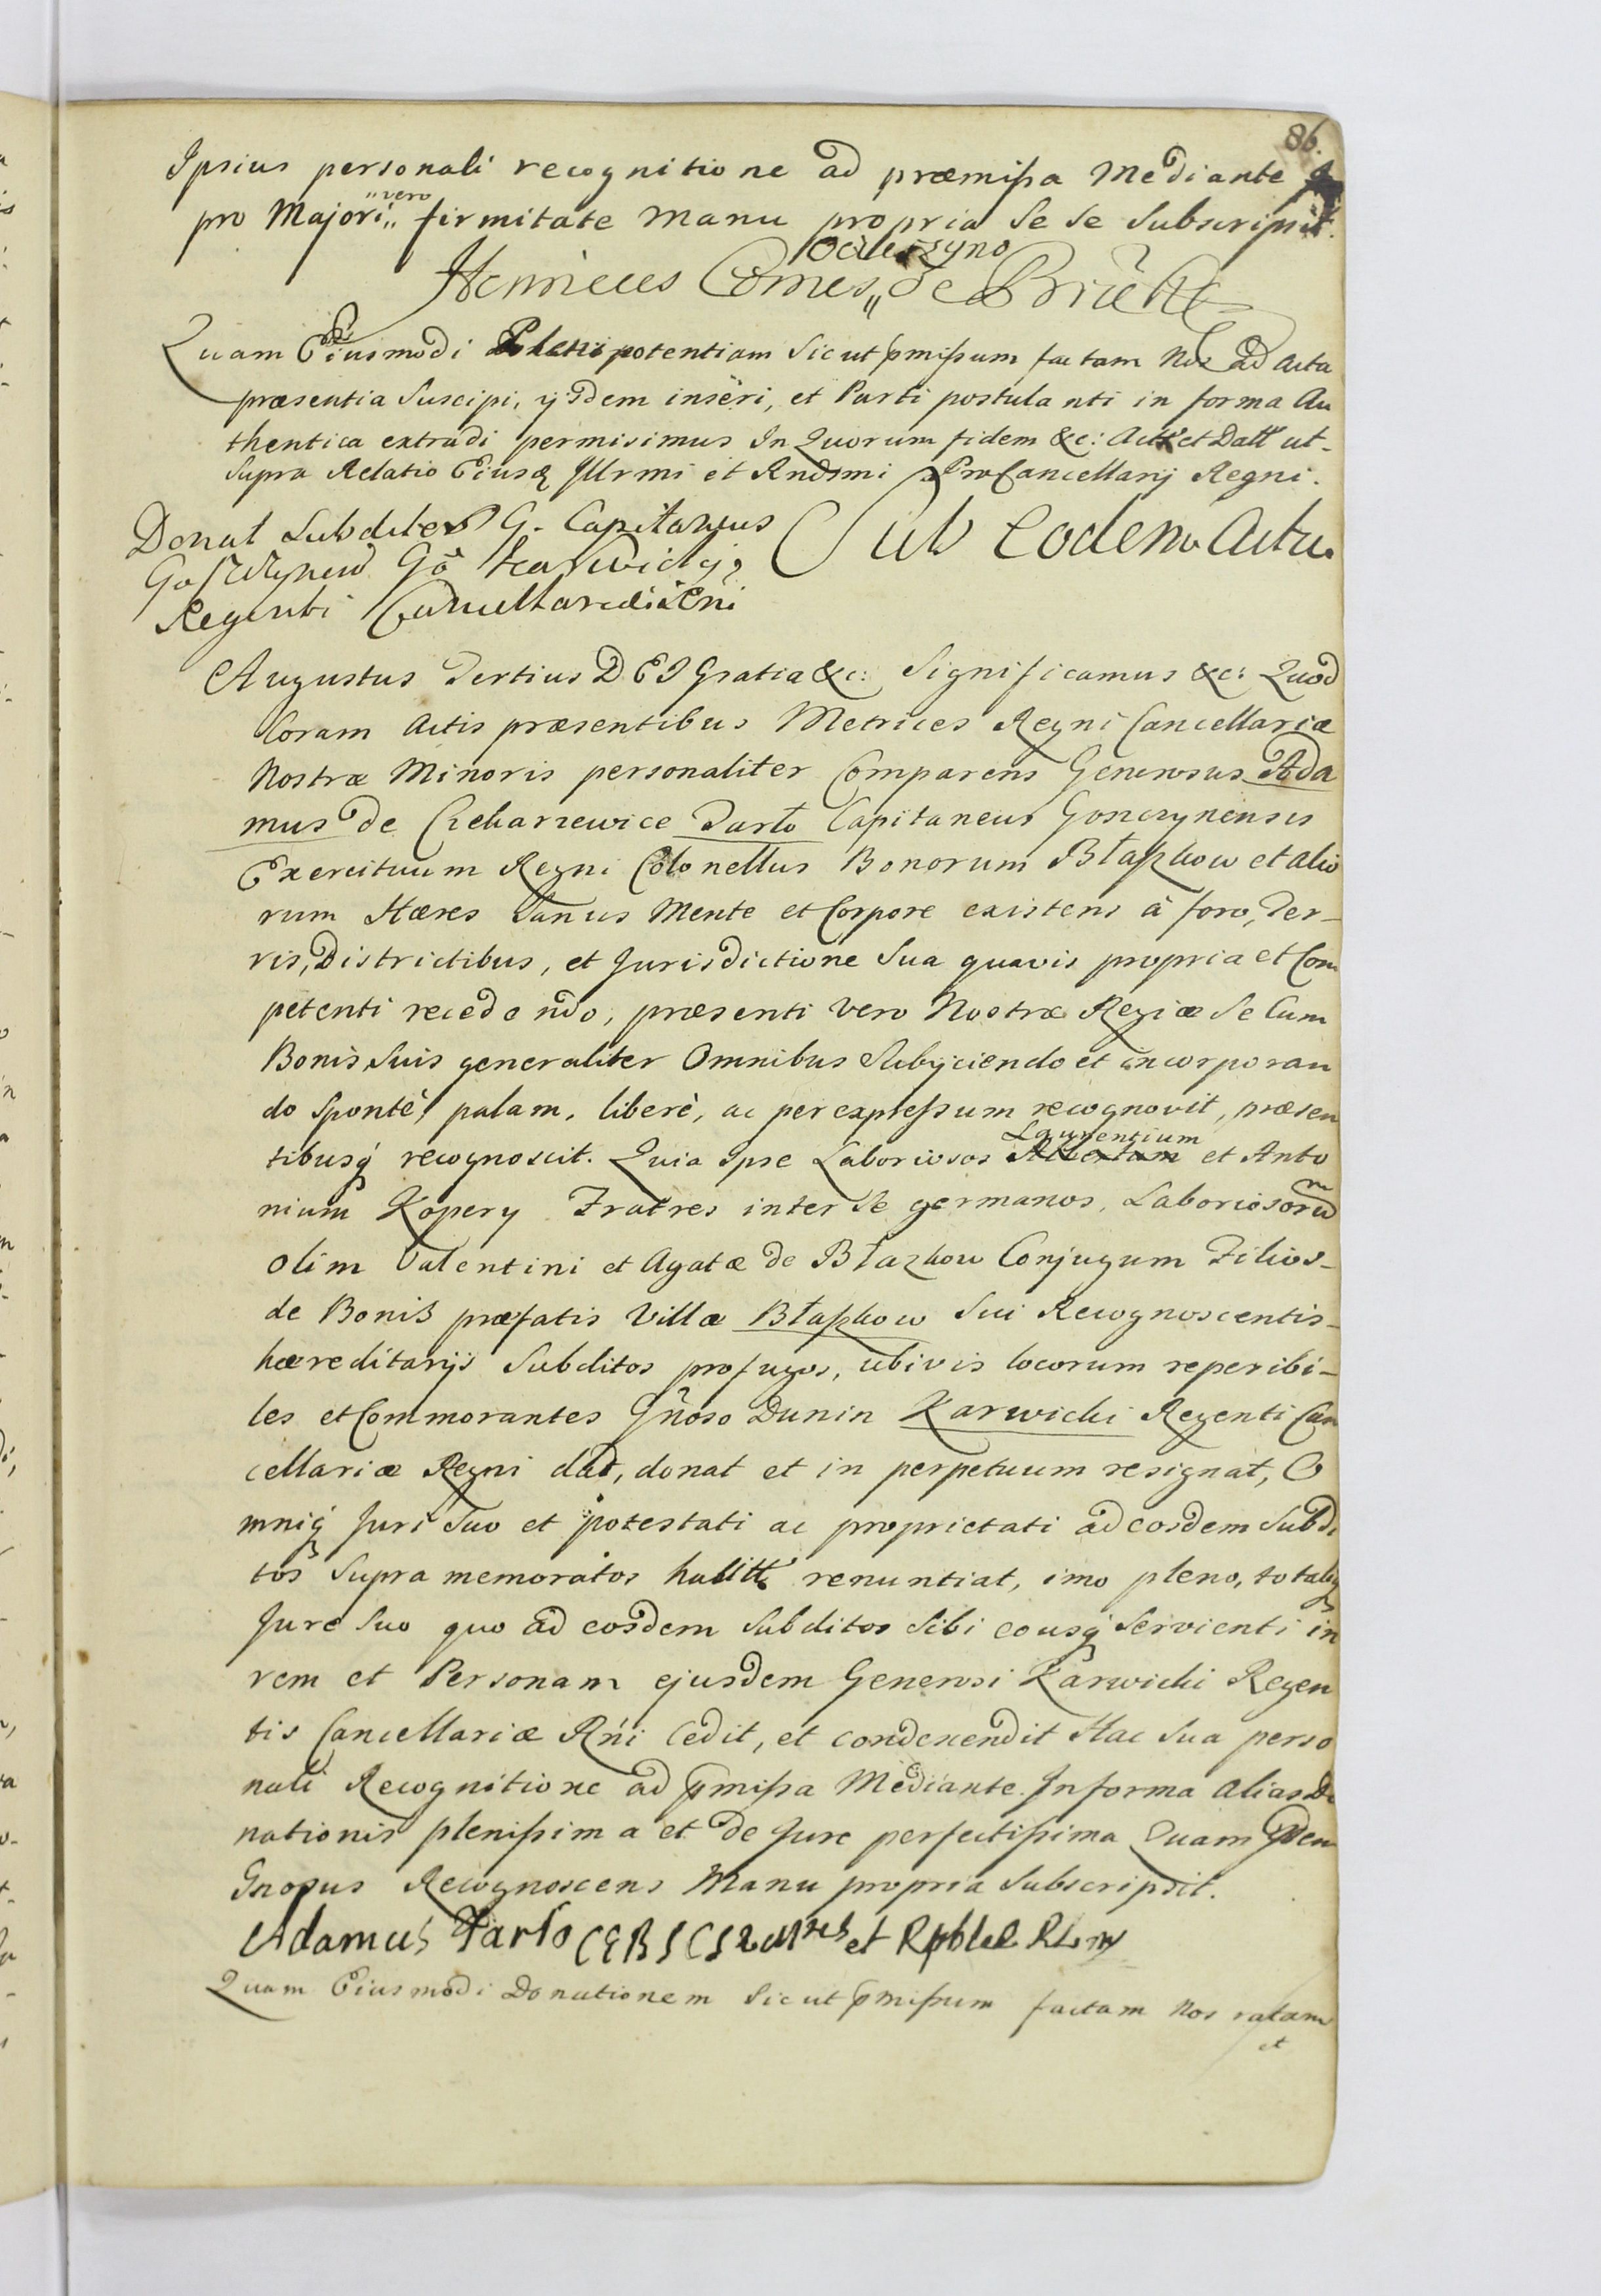 86.
Ipsius personali recognitione ad præmissa Mediante
pro Majori „vero„ firmitate Manu propria Se Se Subscripsit.
Ocieszyno
Henricus Comes „ de Brühl
Quam Eiusmodi Plenipotentiam Sicut pmissum factam Nos ad Acta
præsentia Suscipi, ijsdem inseri, et Parti postulanti in forma Au
thentica extradi permisimus In Quorum fidem &c: Act et Datt ut-
Supra Relatio Eiusq Illrmi et Rndsmi ProCancellarij Regni.
Donat Subditos G. Capitaneus
Goszczynen Gō Karwickj,
Regenti Cancellariæ Rni
Sub Eodem Actu.
Augustus Tertius DEI Gratia &c: Significamus &c: Quod
Coram Actis præsentibus Metrices Regni Cancellariæ
Nostræ Minoris personaliter Comparens Generosus Ada
mus de Czekarzewice Tarło Capitaneus Gosczynensis
Exercituum Regni Colonellus Bonorum Błaszkow et alio
rum Hæres Sanus Mente et Corpore existens à foro, Ter-
ris, Districtibus, et Jurisdictione Sua quavis propria et Com
petenti recedendo, præsenti vero Nostræ Regiæ Se Cum
Bonis Suis generaliter Omnibus Subijciendo et incorporan
do Spontè, palam, liberè, ac per expressum recognovit, præsen
tibusq recognoscit. Quia Ipse Laboriosos Laurentium et Anto
nium Kopery Fratres inter Se germanos, Laboriosorum
olim Valentini et Agatæ de Błazkow Conjugum Filios-
de Bonis præfatis Villæ Błaszkow Sui Recognoscentis-
hæreditarijs Subditos profugos, ubivis locorum reperibi-
les et Commorantes Gñoso Dunin Karwicki Regenti Can
cellariæ Regni dat, donat et in perpetuum resignat, O
mniq Juri Suo et potestati ac proprietati ad eosdem Subdi
tos Supra memoratos habitt renuntiat, imo pleno, totaliq
Jure Suo quo ad eosdem Subditos Sibi eousq Servienti in
rem et Personam ejusdem Generosi Karwicki Regen
tis Cancellariæ Rñi Cedit, et condescendit Hac Sua perso
nali Recognitione ad pmissa Mediante. In forma alias Do
nationis plenissima et de Jure perfectissima Quam Idem
Gnosus Recognoscens Manu propria Subscripsit.
Adamus Tarło
Quam Eiusmodi Donationem Sicut pmissum factam Nos ratam
et